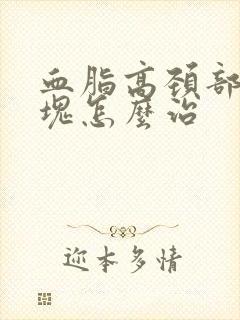 血脂高颈部
块怎麼治
迩本多情